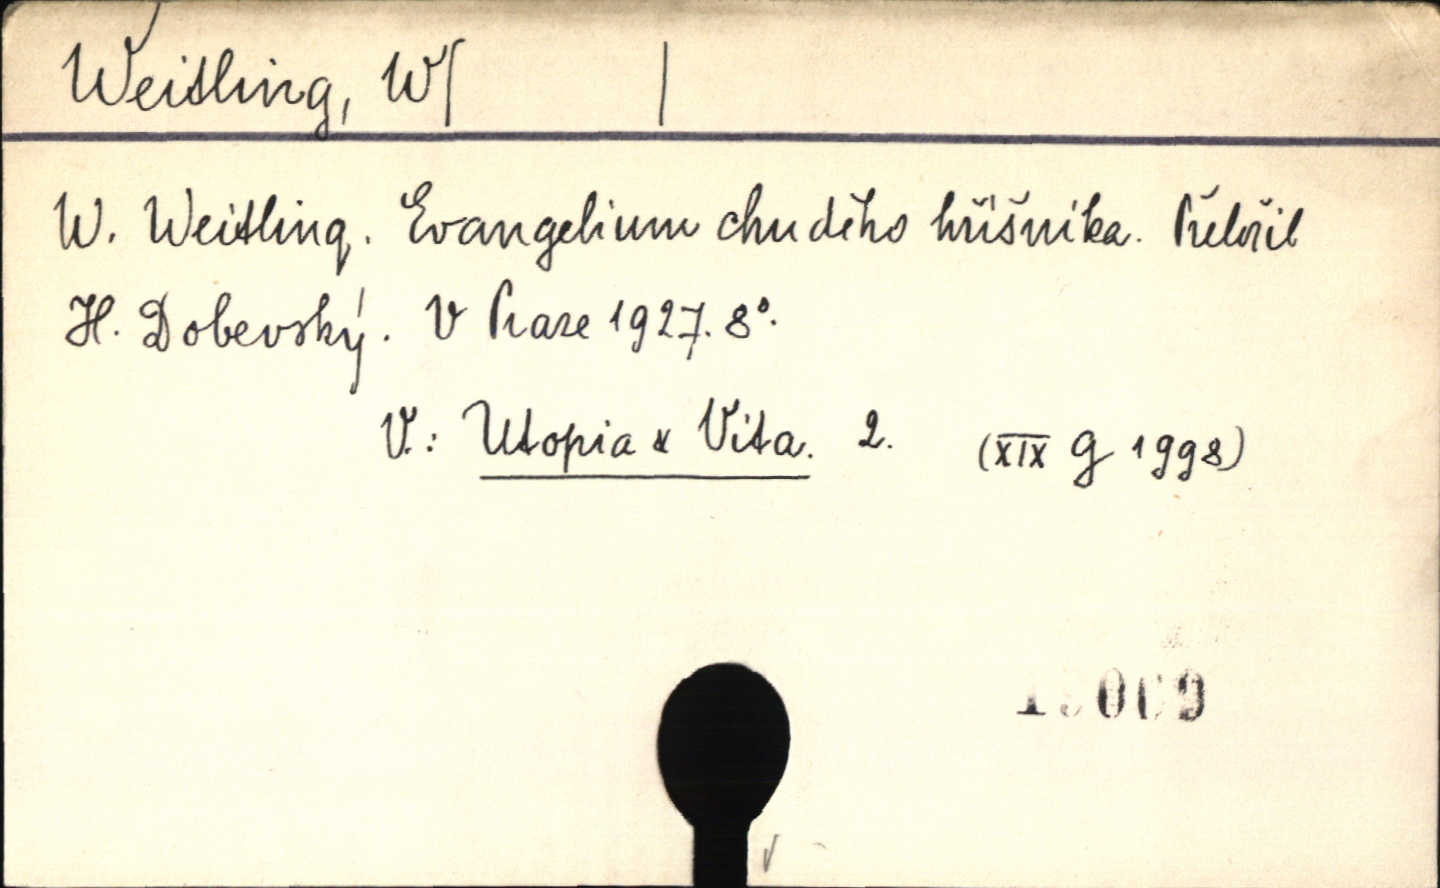 Weitling, W[ ]
W. Weitling. Evangelium chudého hříšníka. Přeložil
H. Dobevský. V Praze 1927. 8°.
V.: Utopia & Vita. 2. (XIX G 1998)